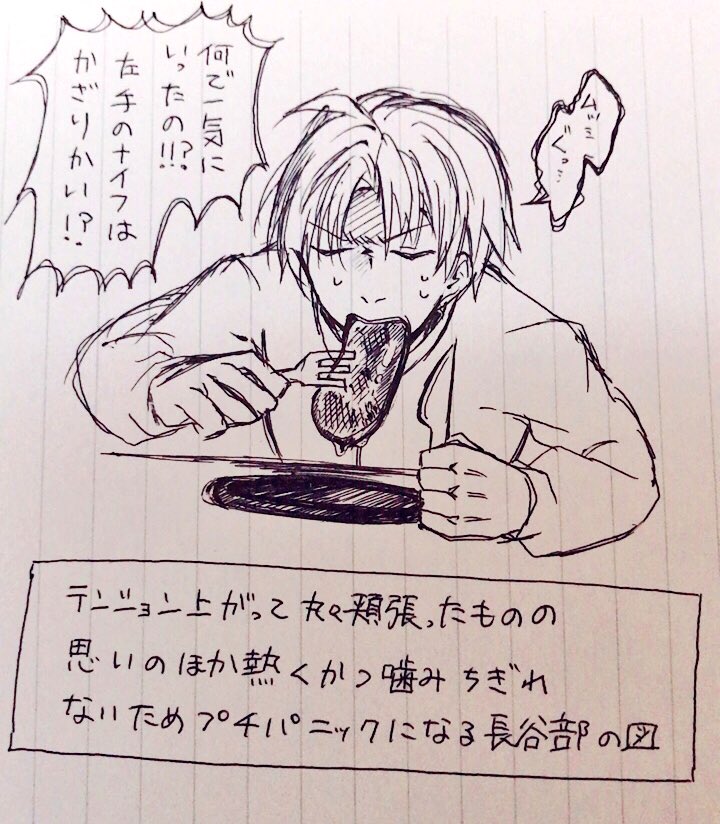 何で一気に
いったの!!?
左手のナイフは
かざりかい!?
テンション上がって丸々頬張ったものの
思いのほか熱くかつ噛みちぎれ
ないためプチパニックになる長谷部の図